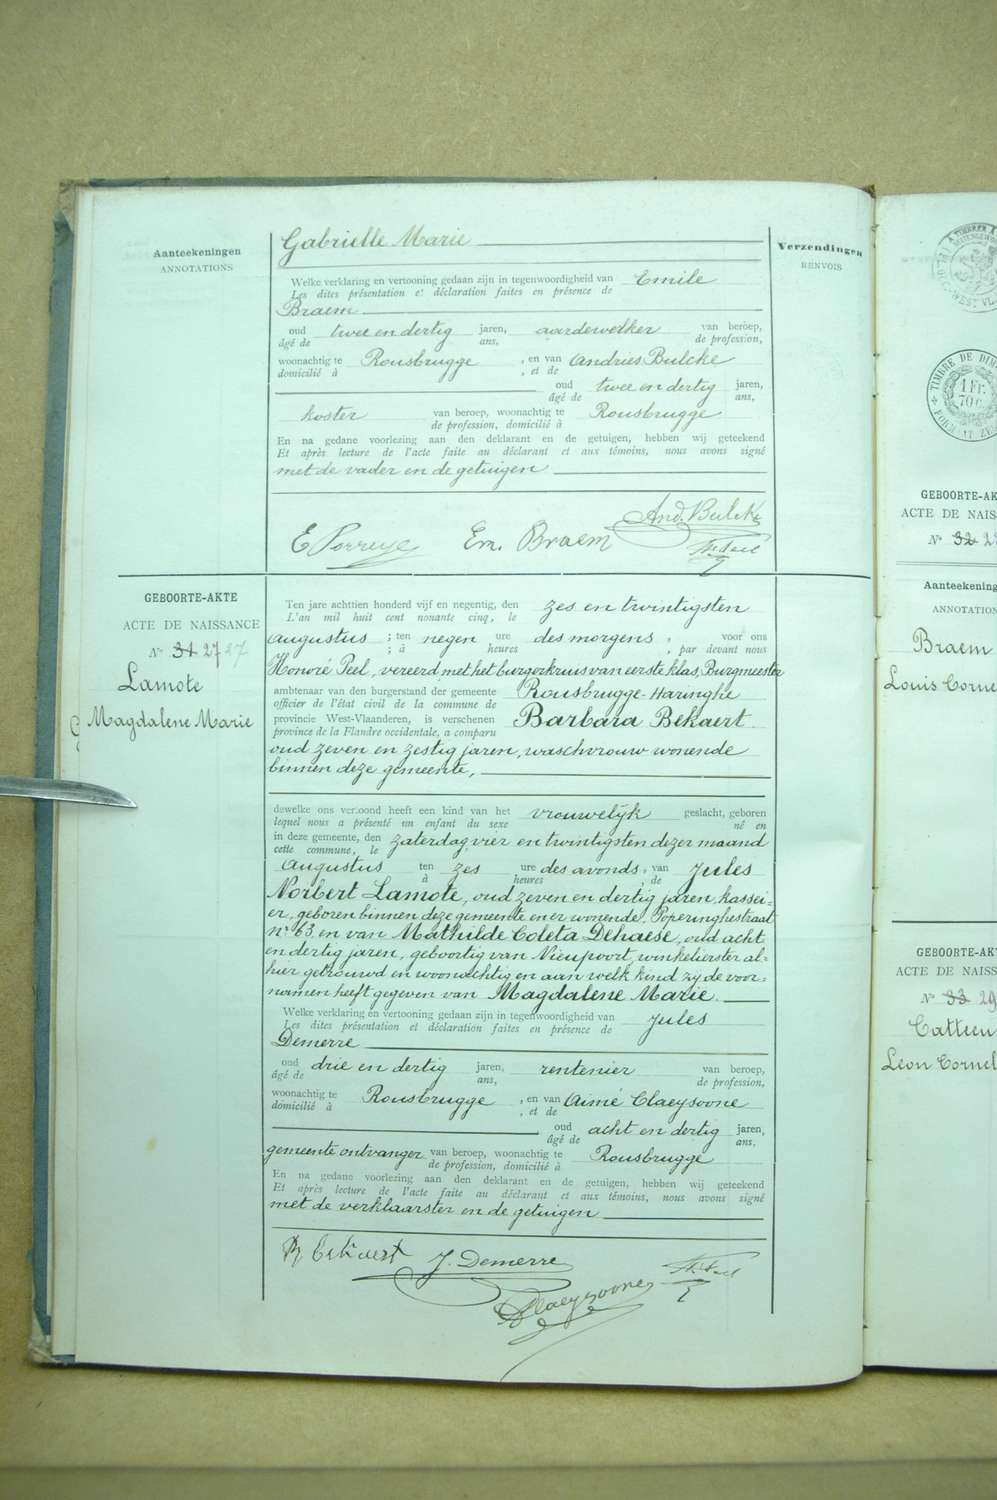 Aanteekeningen
ANNOTATIONS
Gabrielle Marie
Verzendingen
RENVOIS
Welke verklaring en vertooning gedaan zijn in tegenwoordigheid van Emile
Les dites présentation et déclaration faites en présence de
Braem
oud twee en dertig jaren, aardewelker van beroep,
âgé de ans, de profession,
woonachtig te Rousbrugge , en van Andries Bulcke
domicilié à , et de
oud twee en dertig jaren,
âgé de ans,
koster van beroep, woonachtig te Rousbrugge
de profession, domicilié à
En na gedane voorlezing aan den deklarant en de getuigen, hebben wij geteekend
Et après lecture de l'acte faite au déclarant et aux témoins, nous avons signé
met de vader en de getuigen
And. Bulcke
E Porreye Em. Braem
H. Peel
GEBOORTE-AKTE
ACTE DE NAISSANCE
Nr 31 27 27
Lamote
Magdalene Marie
Ten jare achttien honderd vijf en negentig, den zes en twintigsten
L'an mil huit cent nonante cinq, le
augustus ; ten negen ure des morgens , voor ons
; à heures , par devant nous
Honoré Peel, vereerd met het burgerkruis van eerste klas, Burgmeester
ambtenaar van den burgerstand der gemeente Rousbrugge-Haringhe
officier de l'état civil de la commune de
provincie West-Vlaanderen, is verschenen Barbara Bekaert
province de la Flandre occidentale, a comparu
oud zeven en zestig jaren, waschvrouw wonende
binnen deze gemeente,
dewelke ons vertoond heeft een kind van het vrouwelyk geslacht, geboren
lequel nous a présenté un enfant du sexe né en
in deze gemeente, den zaterdag, vier en twintigsten dezer maand
cette commune, le
Augustus ten zes ure des avonds, van Jules
à heures , de
Norbert Lamote, oud zeven en dertig jaren, kassei=
er, geboren binnen deze gemeente en er wonende, Poperinghestraat
nr 63, en van Mathilde Coleta Dehaese, oud acht
en dertig jaren, geboortig van Nieupoort, winkelierster al=
hier getrouwd en woonachtig en aan welk kind zy de voor=
namen heeft gegeven van Magdalene Marie.
Welke verklaring en vertooning gedaan zijn in tegenwoordigheid van Jules
Les dites présentation et déclaration faites en présence de
Demerre
oud drie en dertig jaren, rentenier van beroep,
âgé de ans, de profession,
woonachtig te Rousbrugge , en van Aimé Claeysoone
domicilié à , et de
oud acht en dertig jaren,
âgé de ans.
gemeente ontvanger van beroep, woonachtig te Rousbrugge
de profession, domicilié à
En na gedane voorlezing aan den deklarant en de getuigen, hebben wij geteekend
Et après lecture de l'acte faite au déclarant et aux témoins, nous avons signé
met de verklaarster en de getuigen
B Bekaert J. Demerre H. Peel
Claeysoone
TIMBRE DE DIM
1 Fr.
70 c.
GEBOORTE-AK
ACTE DE NAIS
Nr 32 28
Aanteekening
ANNOTATION
Braem
Louis Corne
GEBOORTE-AKT
ACTE DE NAISS
Nr 33 29
Catteeu
Leon Cornel